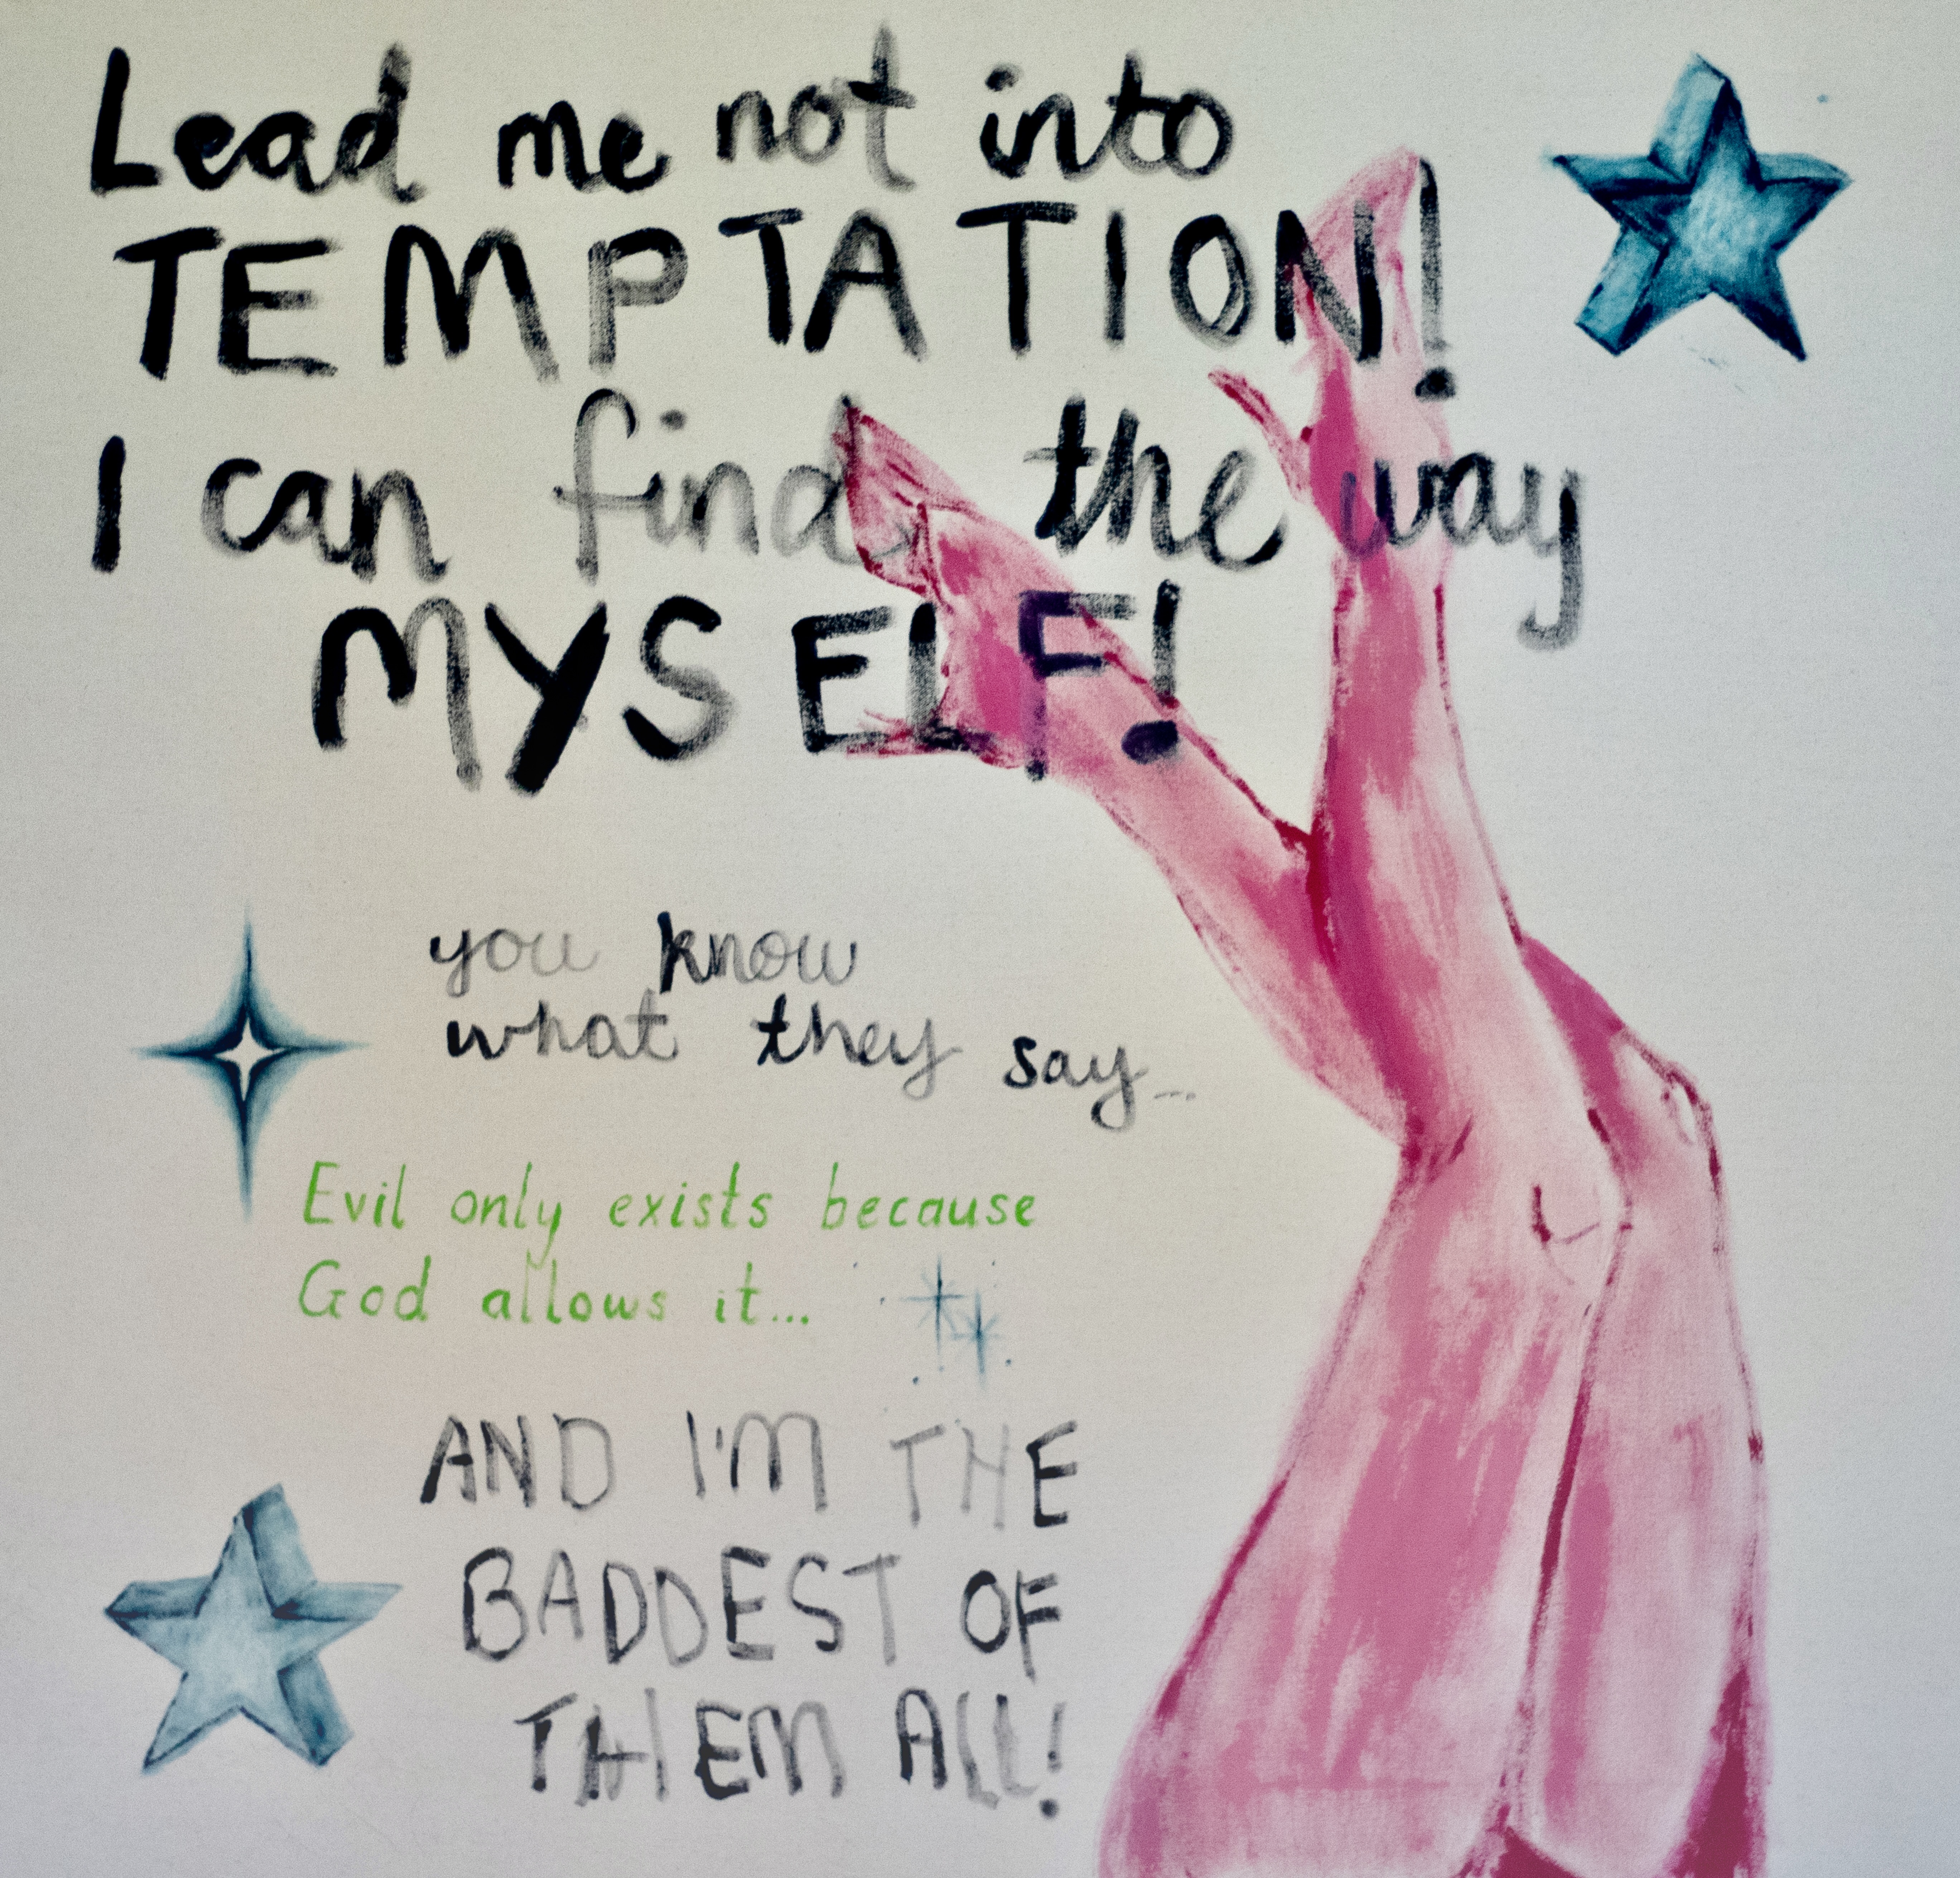 Lead me not into
TEMPTATION!
I can find the way
MYSELF!
you know
what they say...
Evil only exists because
God allows it...
AND I'M THE
BADDEST OF
THEM ALL!